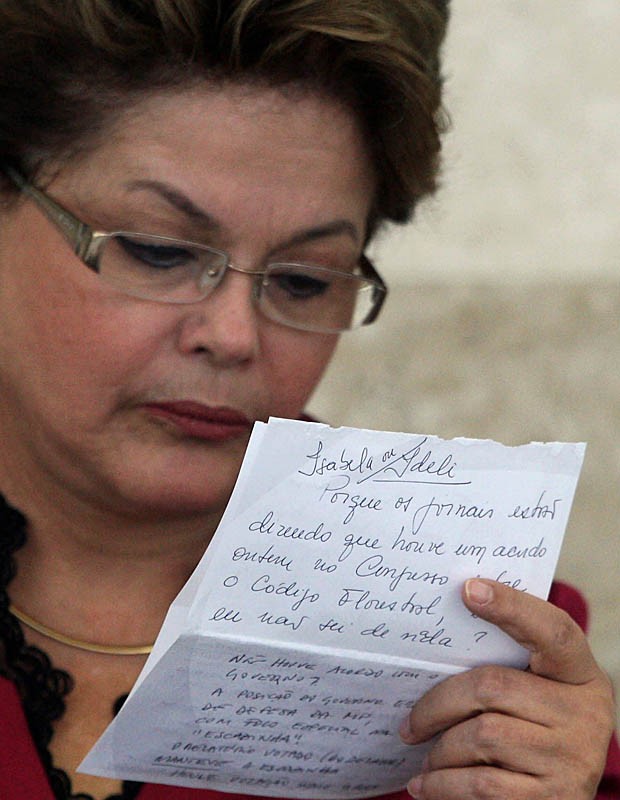 Isabela ou Ideli
Porque os jornais estão
dizendo que houve um acordo
ontem no Congresso sobre
o Código Florestal, e
eu não sei de nada?
NÃO HOUVE ACORDO COM O
GOVERNO?
A POSIÇÃO DO GOVERNO É
DE DEFESA DA MP
COM FOCO ESPECIAL NA
"ESCADINHA"
O RELATÓRIO VOTADO
MANTEVE A ESCADINHA
HOUVE